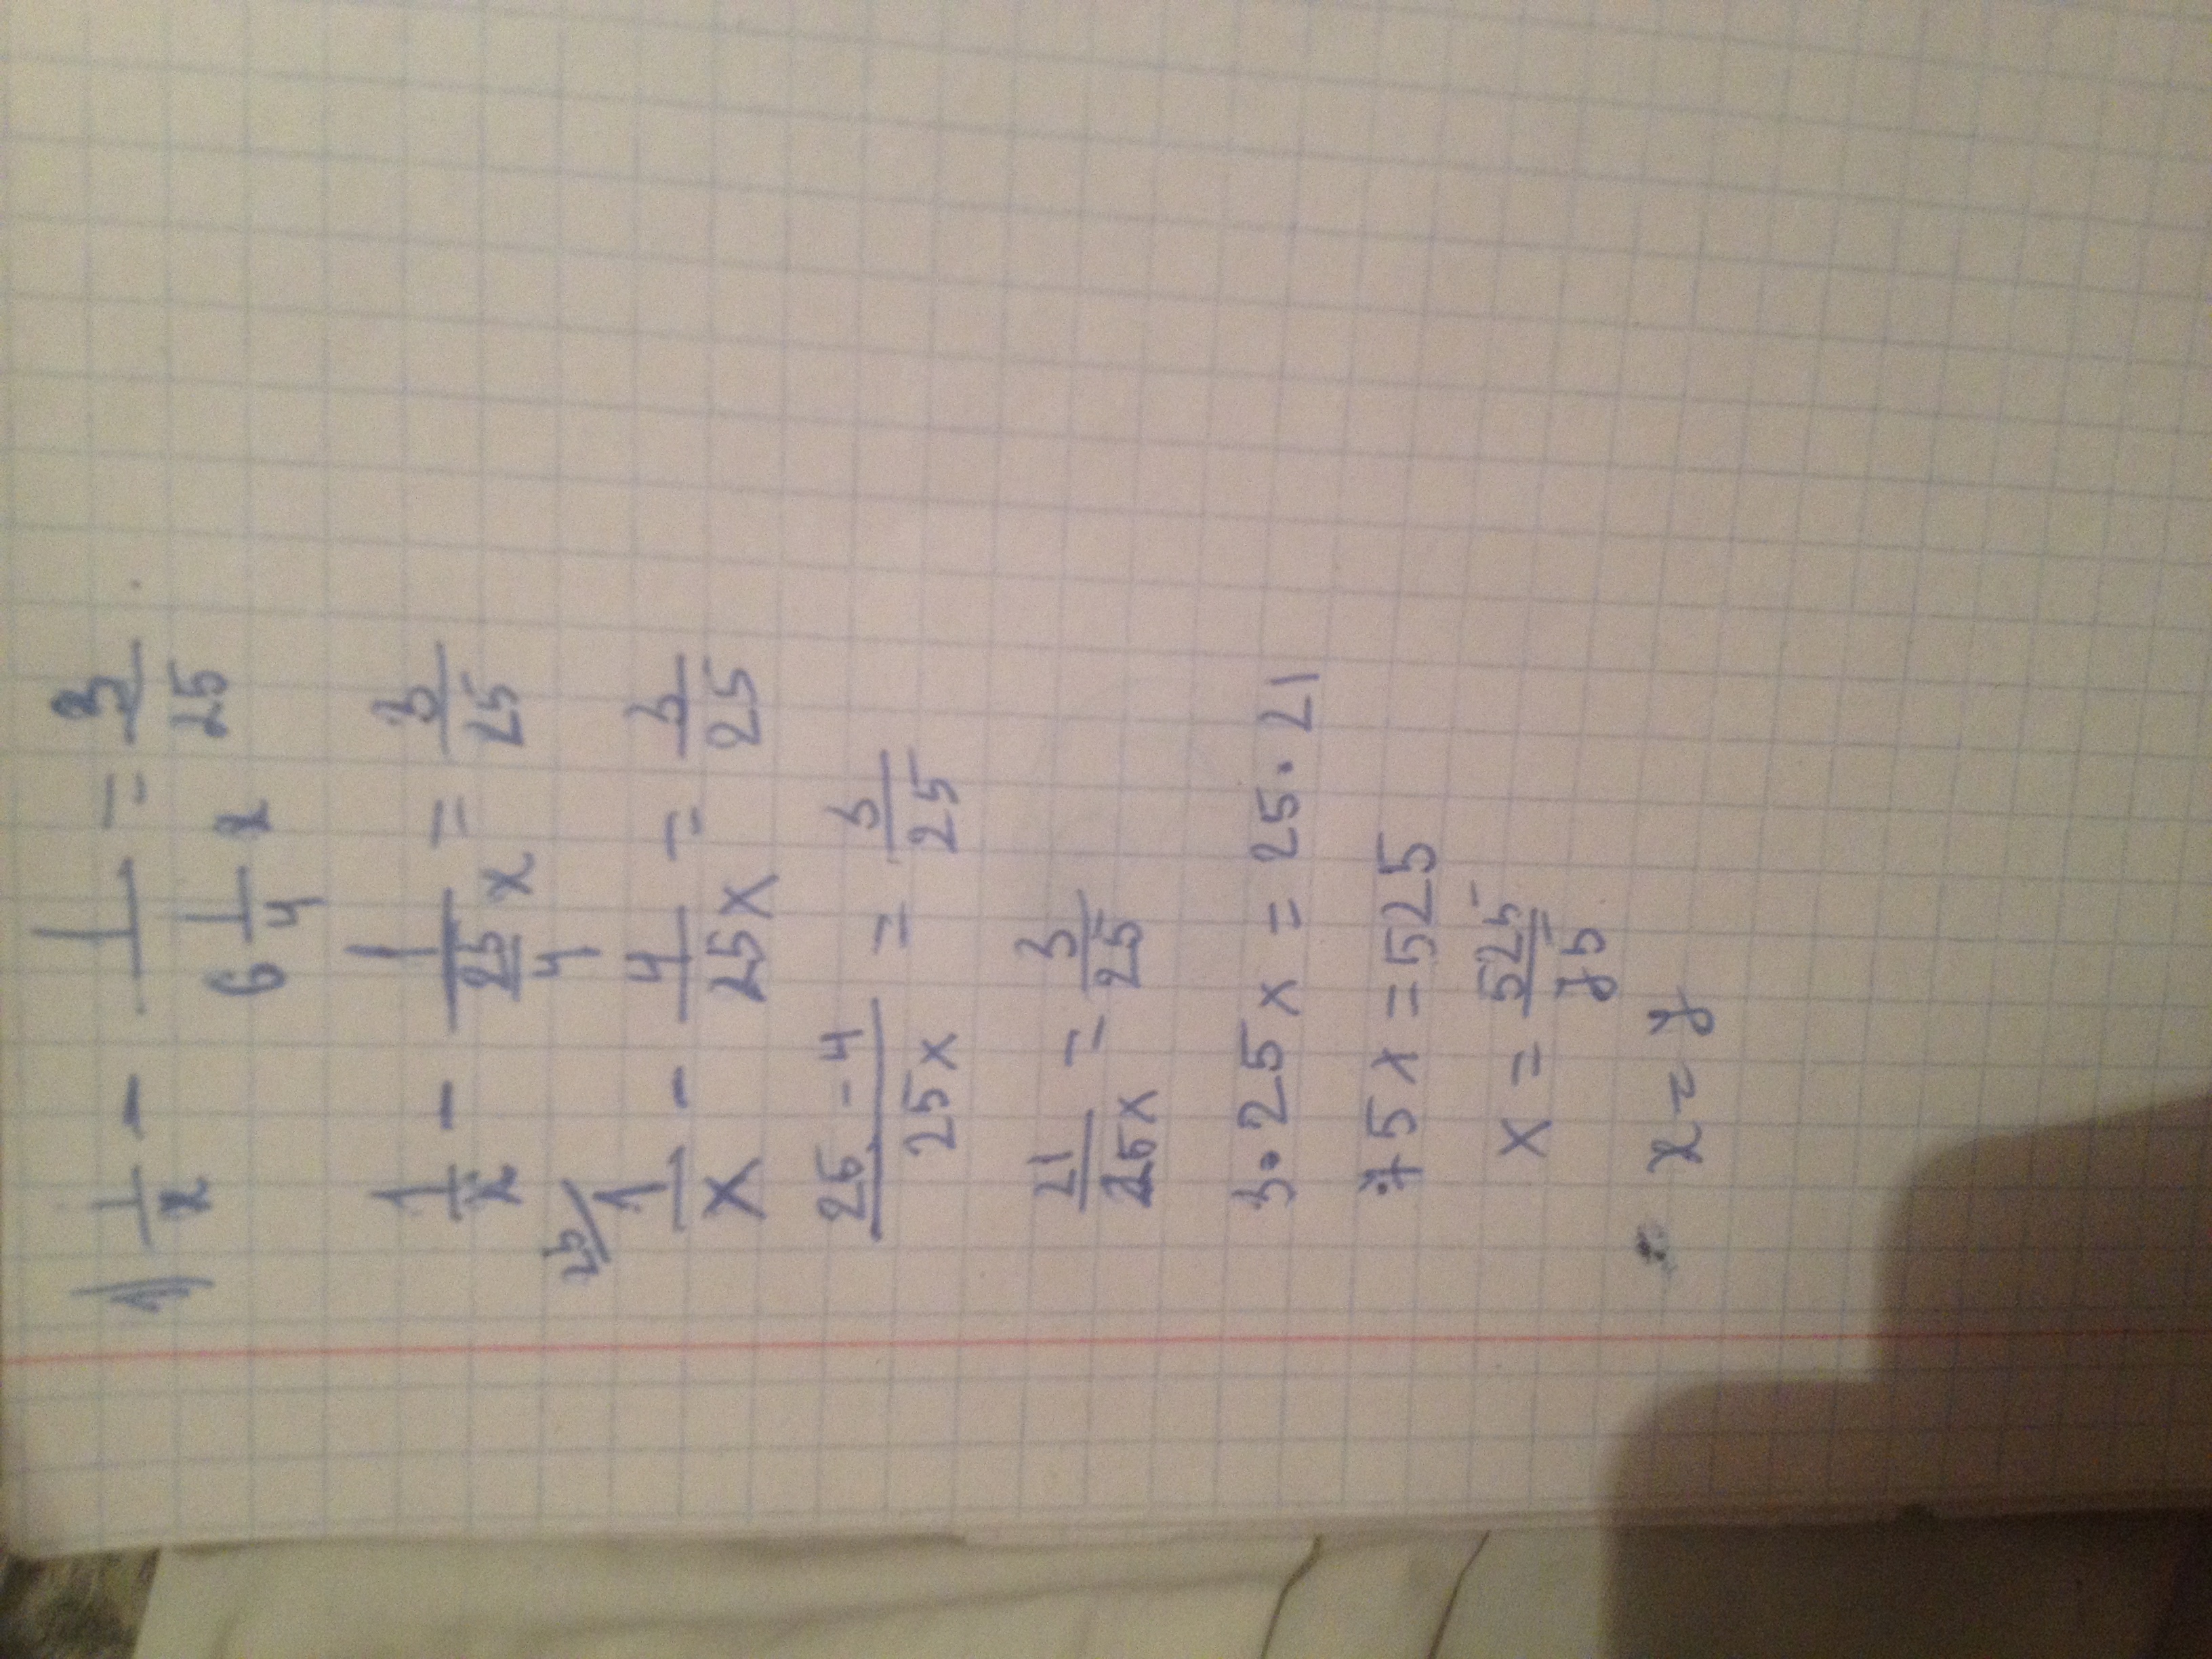 1) 1/x - 1/(6 1/4 x) = 3/25
1/x - 1/(25/4 x) = 3/25
25/ 1/x - 4/25x = 3/25
25-4/25x = 3/25
21/25x = 3/25
3·25x = 25·21
75x = 525
x = 525/75
x = 7